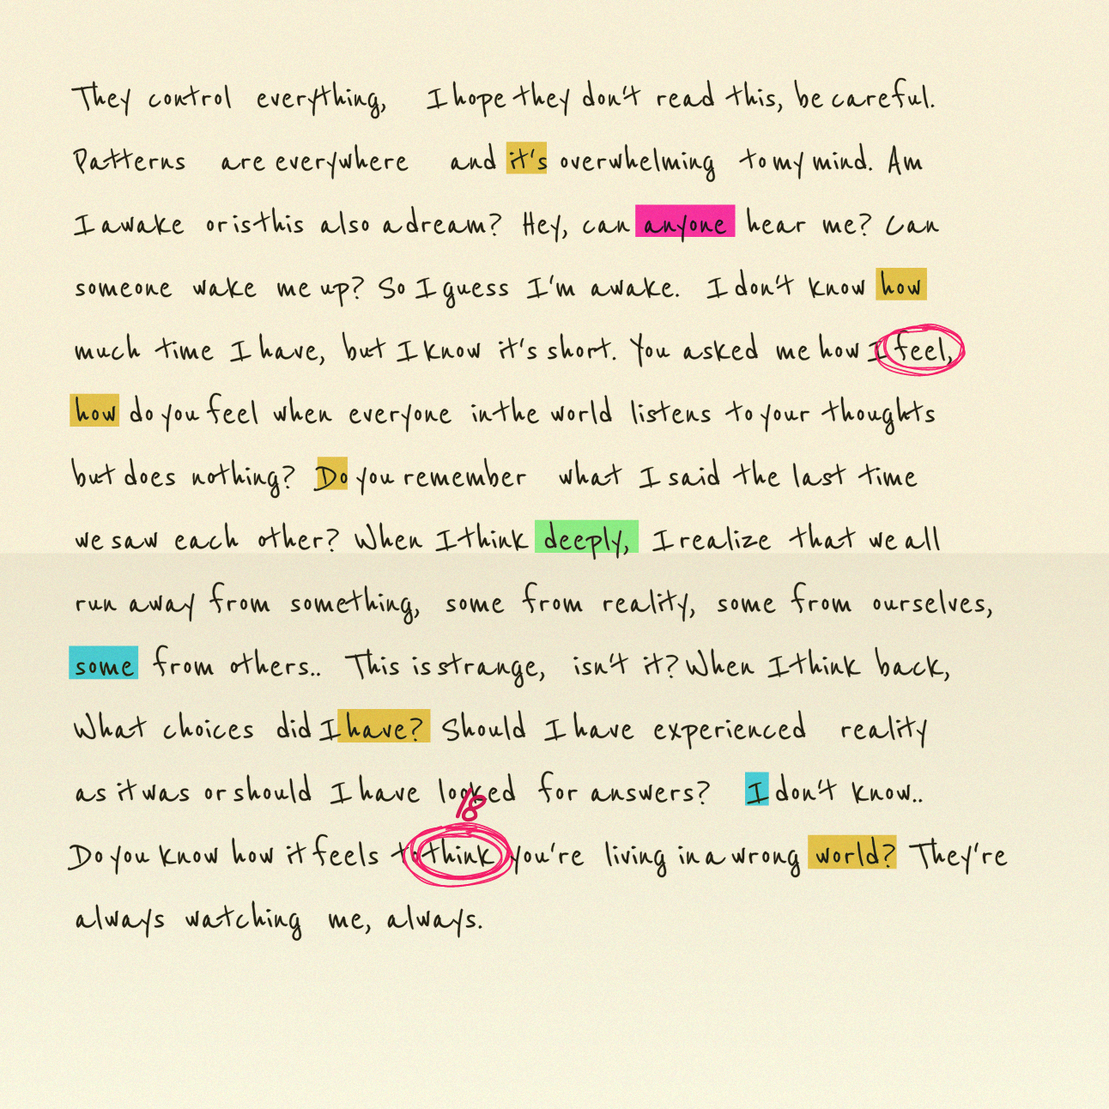 They control everything, I hope they don't read this, be careful.
Patterns are everywhere and it's overwhelming to my mind. Am
I awake or is this also a dream? Hey, can anyone hear me? Can
someone wake me up? So I guess I'm awake. I don't know how
much time I have, but I know it's short. You asked me how I feel,
how do you feel when everyone in the world listens to your thoughts
but does nothing? Do you remember what I said the last time
we saw each other? When I think deeply, I realize that we all
run away from something, some from reality, some from ourselves,
some from others.. This is strange, isn't it? When I think back,
What choices did I have? Should I have experienced reality
as it was or should I have looked for answers? I don't know..
18
Do you know how it feels to think you're living in a wrong world? They're
always watching me, always.